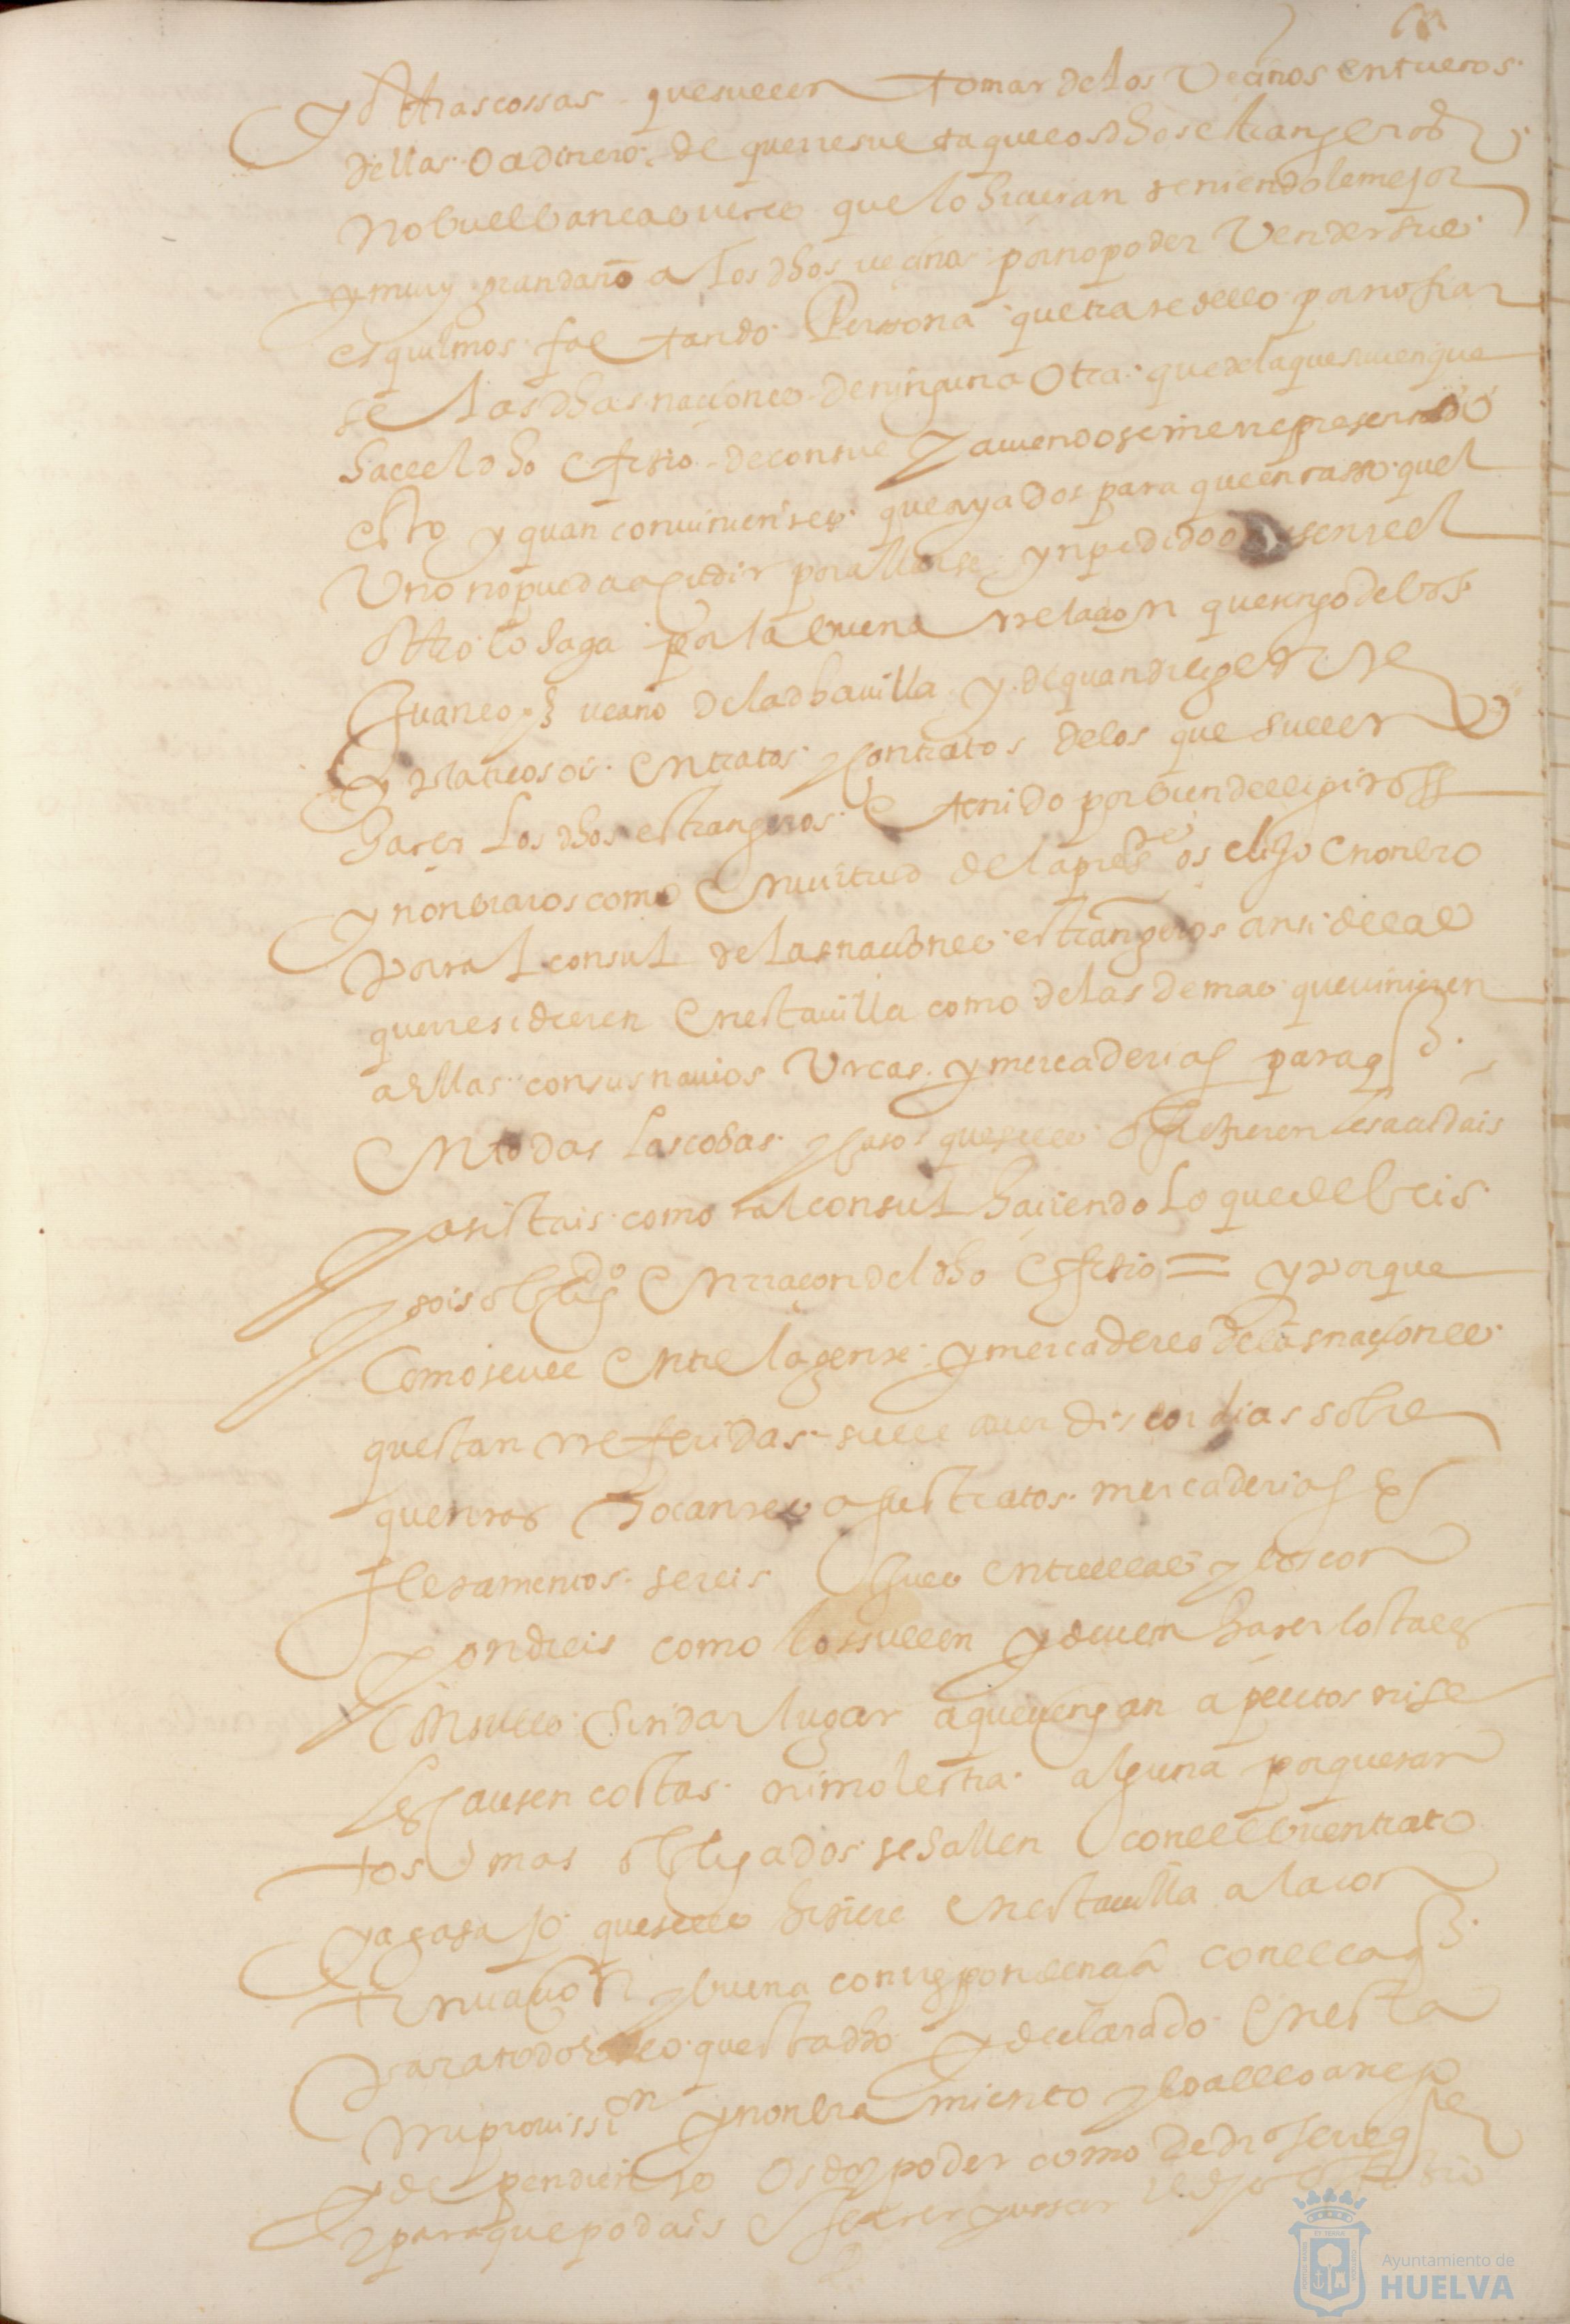 y otras cossas que suelen tomar de los vecinos en trueros
dellas o a dinero de que rresulta que los dhos estrangeros
no buelban a
y muy gran daño a los dhos vecinos por no poder vender sus
esquilmos faltando Persona que trate dello por no fiar
se las dhas naciones de ninguna otra que de la que
hace el dho offisio de consul y auiendoseme representado
esto y quan conuiniente es que aya dos para que en casso quel
Vno no pueda acudir por allarse ynpedido o ausente el
Otro lo haga por la buena rrelacion que tengo de bos
Juan vecino de la dha uilla y de quan diligente
y platico sois en tratos y contratos de los que suelen
hacer los dhos estrangeros e tenido por bien de elegiros
y nonbraros como en uirtud de la pressente os elijo e nonbro
por tal consul de las naciones estrangeros ansi de las
que rresidieren en esta uilla como de las demas que uinieren
a ellas con sus nauios Vrcas y mercaderias para q
en todas las cosas y casos que se les offresieren les acudais
y asistais como tal consul haciendo lo que debeis
y sois obligdo en rraçon del dho offisio = y porque
Como se uee entre la gente y mercaderes de las naciones
questan rreferidas suele auer discordias sobre
quentas tocantes a sus tratos mercaderias
fletamentos sereis Jues entre ellas y los con
pondreis como lo suelen y deuen hacer los tales
consules sin dar lugar a que uengan a pleitos ni se
les causen costas ni molestia alguna porque tan
tos mas obligados se hallen con el buen trato
y agasajo que se les hisiere en esta uilla a la con
tinuacion y buena correspondencia con ellas
Para todo lo questa dho y declarado en esta
mi prouission y nonbramiento y lo a ello anejo
y dependiente os doy poder como de dro se req
para que podais exercer y ussar el dho offisio
Ayuntamiento de
HUELVA